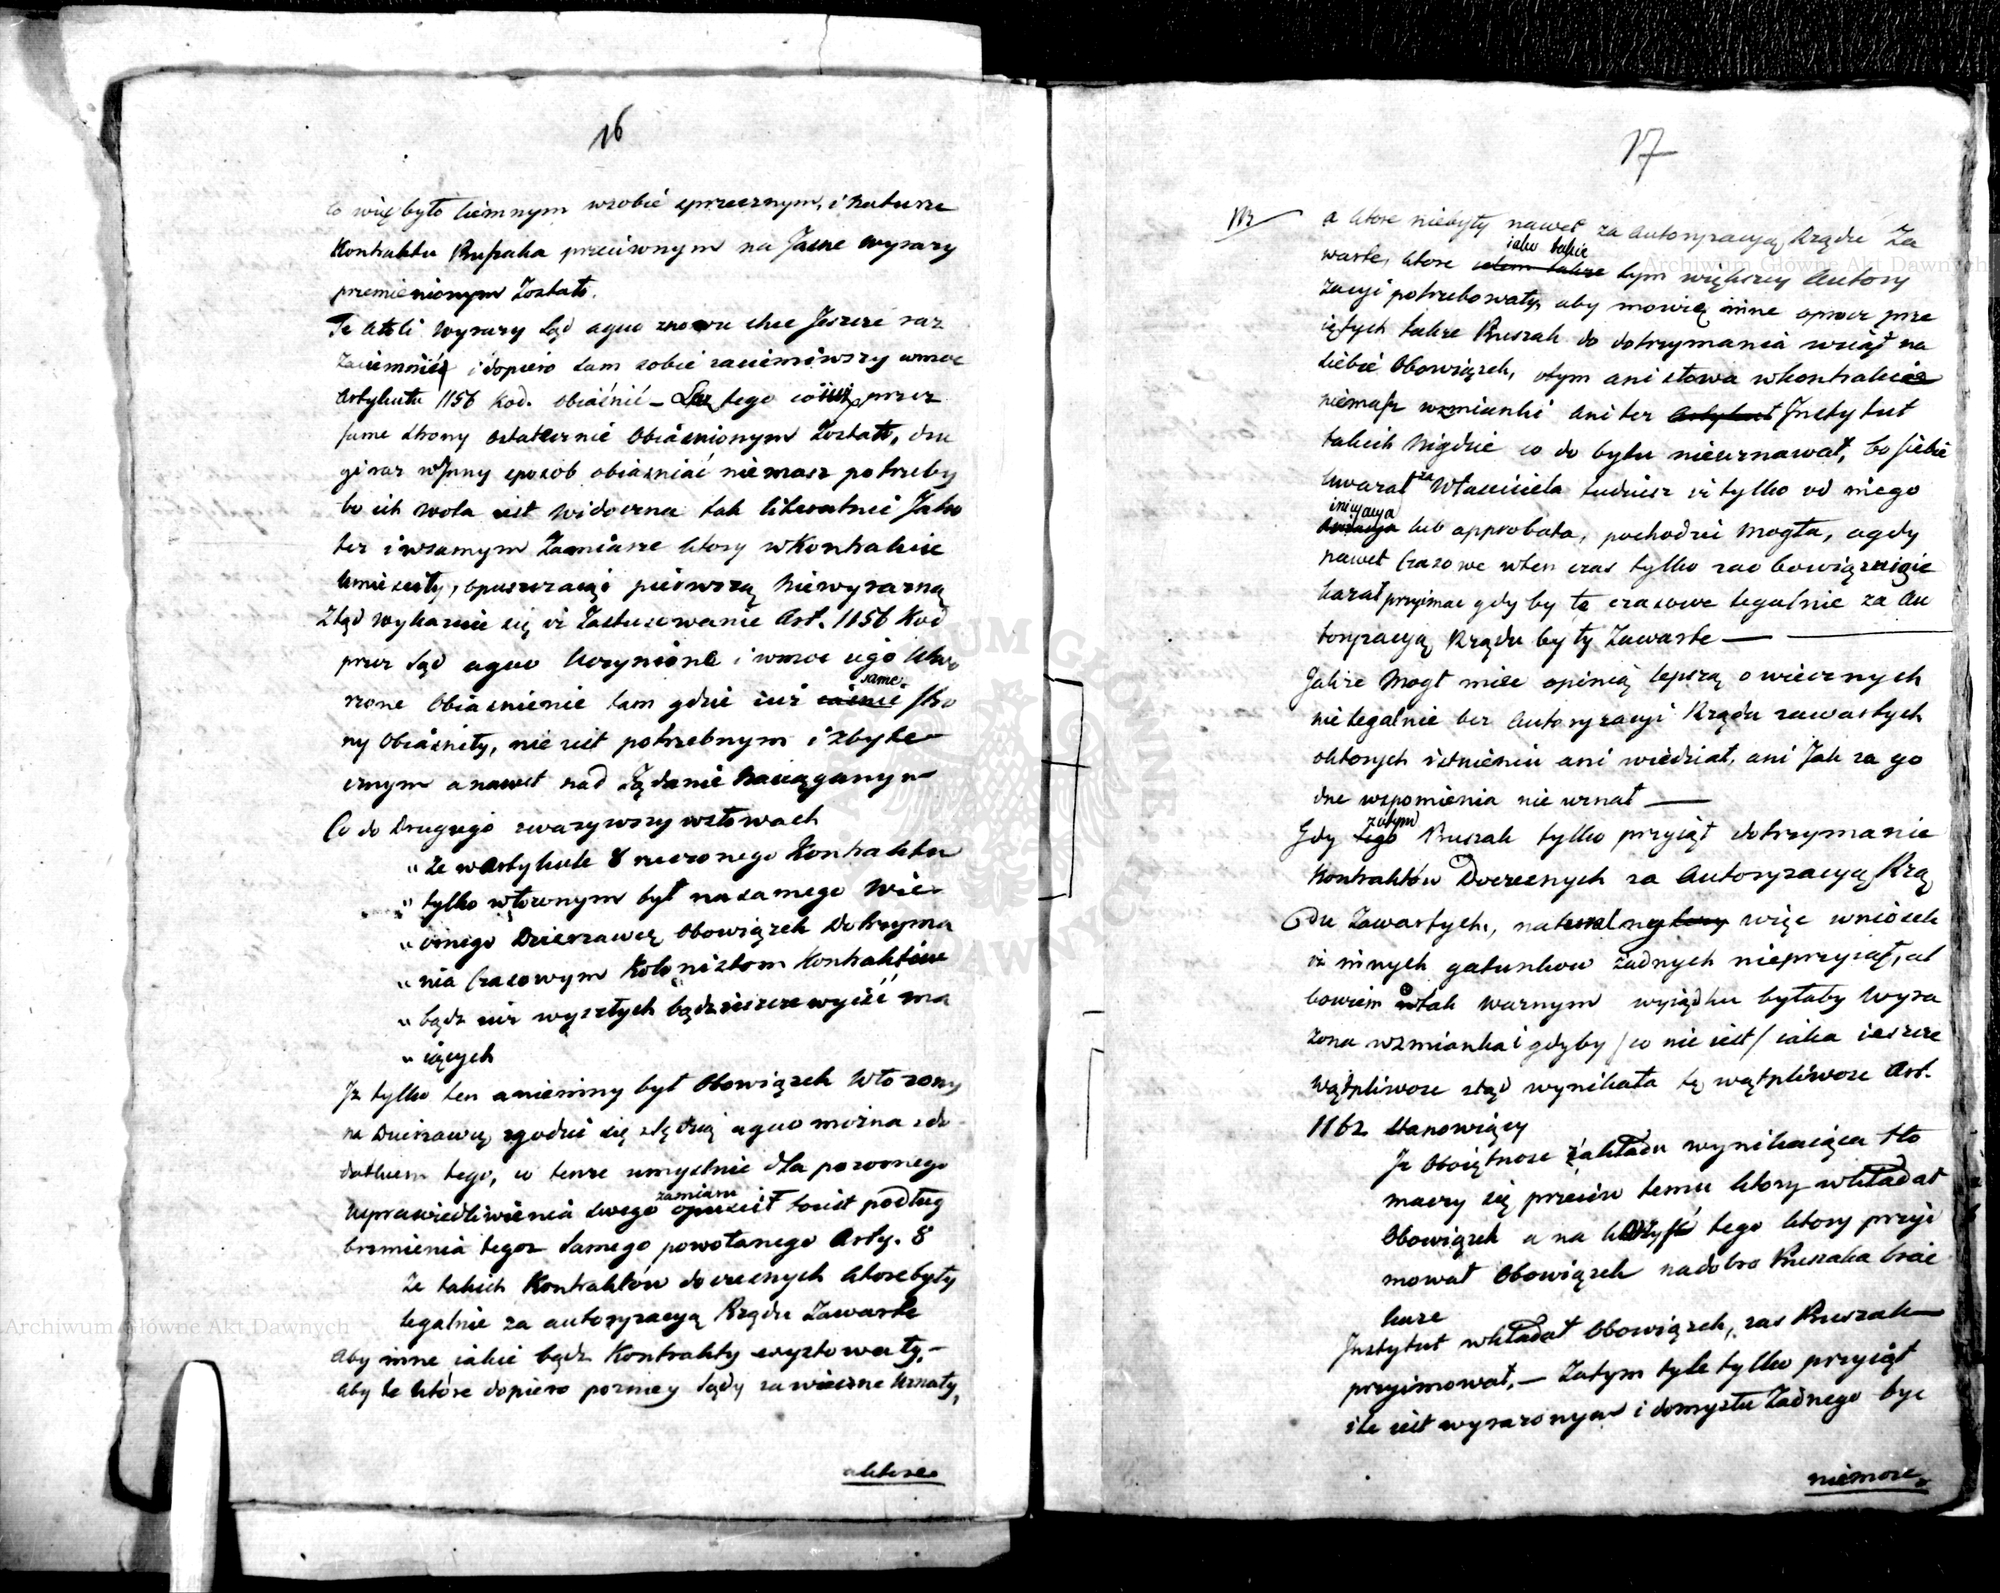 16
co więc było ciemnym wsobie sprzecznym, i naturze
Kontraktu Ruszaka przeciwnym na Jasne wyrazy
premienionym Zostało.
Te atoli wyrazy Sąd aquo znowu chce Jeszcze raz
Zaciemnić i dopiero sam sobie zaciemiwszy wmoc
Artykułu 1156 Kod. Obiaśnić – tego co iuż przez
same strony ostatecznie Obiasnionym Zostało, dru
gi raz wJnny sposób obiasniać nie masz potrzeby
bo ich wola iest widoczna tak literalnie Jako
tez i wsamym Zamiarze ktory wKontrakcie
Umiescily, opuszczaiąc pierwszą Niewyrazną
Ztąd wykazuie się iż Zastosowanie Art. 1156 Kod
przez Sąd aquo Uczynione i wmoc iego Utwo
rzone Obiasnienie tam gdzie iuż same stro
ny Obiasniły, nie iest potrzebnym i zbyte
cznym a nawet nad Żądanie Naciąganym
Co do Drugiego zwazywszy wsłowach
„ Ze wArtykule 8 rzeczonego Kontraktu
„ tylko włozonym był na samego Wie-
„ cznego Dzierzawcę Obowiązek Dotrzyma
„ nia Czasowym Kolonistom Kontraktów
„ bądz iuż wyszłych bądz ieszcze wyiść ma
„ iących
Jz tylko ten a nieinny był Obowiązek Włozony
na Dzierzawcę zgodzi się z Sędzią aquo można z do
datkiem tego, co tenze umyslnie dla pozornego
Usprawiedliwienia swego zamiaru opuscił toiest podług
brzmienia tegoz Samego powołanego Arty. 8
Ze takich Kontraktów doczesnych ktore były
legalnie za autoryzacyą Rządu Zawarte
Aby inne iakie bądz Kontrakty exystowały,–
Aby te które dopiero pozniey Sądy za wieczne Uznały,
aktore
17
a ktore niebyły nawet za Autoryzacyą Rządu Za
warte, ktore iako takie tym większey Autory
zacyi potrzebowały, aby mowię inne oprocz prze
iętych takze Ruszak do dotrzymania wziął na
siebie Obowiązek, otym ani słowa wkontrakcie
niemasz wzmianki ani tez Jnstytut
takich Nigdzie co do bytu nieuznawał, bo siebie
Uwazał za Właściciela tudziesz iz tylko od niego
inicyacya lub approbata, pochodzić Mogła, agdy
nawet Czasowe wten czas tylko zaobowiązuiące
kazał przyimac gdy by te czasowe legalnie za Au
toryzacyą Rządu były Zawarte —
Jakze Mogł miec opinią lepszą o wiecznych
nielegalnie bez Autoryzacyi Rządu zawartych
oktorych istnieniu ani wiedział, ani Jak za go
dne wspomienia nie uznał —
Gdy zatym Ruszak tylko przyiął dotrzymanie
Kontraktów Doczesnych za Autoryzacyą Rzą
du Zawartych, naturalny więc wniosek
iż innych gatunkow Żadnych nieprzyiął, al
bowiem o tak waznym wyiądku byłaby Wyra
zona wzmianka i gdyby /co nie iest/ iaka ieszcze
Wątpliwosc ztąd wynikała tę wątpliwosc Art.
1162 Stanowiący
Jz Oboiętnosc zakładu wynikaiąca tło
maczy się przeciw temu ktory wkładał
Obowiązek a na korzyść tego ktory przyi
mował Obowiązek nadobro Ruszaka brac
kaze
Jnstytut wkładał Obowiązek, zas Ruszak
przyimował, – Zatym tyle tylko przyiął
ile iest wyrazonym i domysłu Żadnego byc
niemoze